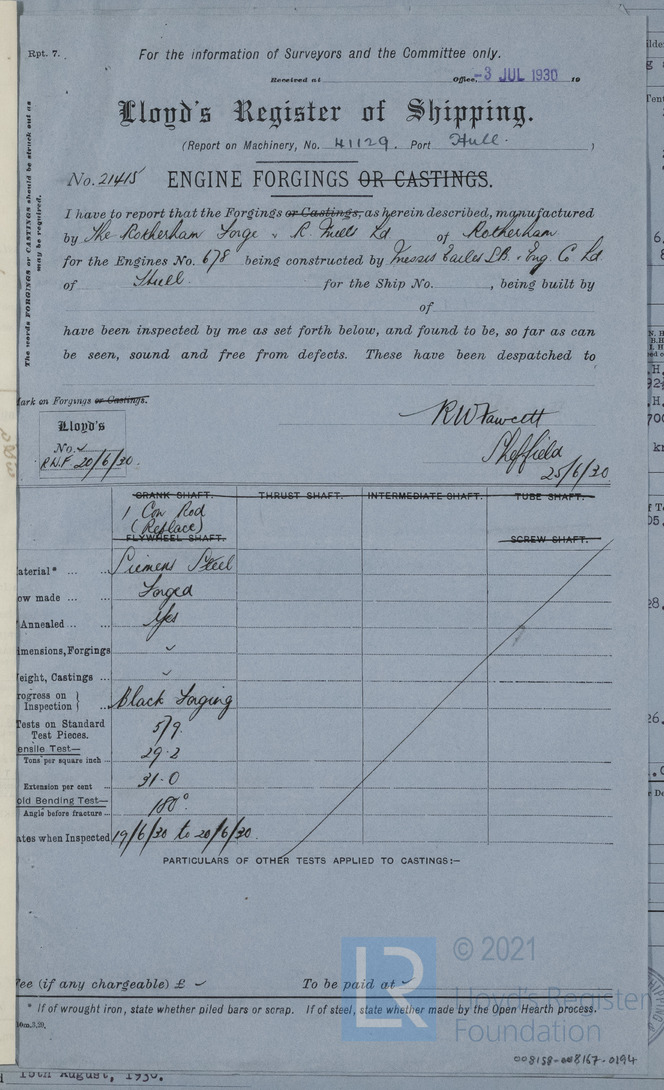 Rpt. 7.
For the information of Surveyors and the Committee only.
Received at Office, -3 JUL 1930 19
Lloyd's Register of Shipping.
(Report on Machinery, No. 41129. Port Hull. )
No. 21415 ENGINE FORGINGS OR CASTINGS.
The words FORGINGS or CASTINGS should be struck out as
may be required.
I have to report that the Forgings or Castings, as herein described, manufactured
by The Rotherham Forge & R. Mills Ld of Rotherham
for the Engines No. 678 being constructed by Messrs Earles S.B. & Eng. Co Ld.
of Hull. for the Ship No. , being built by
of
have been inspected by me as set forth below, and found to be, so far as can
be seen, sound and free from defects. These have been despatched to
Mark on Forgings or Castings.
Lloyd's
No.
R.W.F 20/6/30.
RWFawcett
Sheffield
25/6/30
CRANK SHAFT. THRUST SHAFT. INTERMEDIATE SHAFT. TUBE SHAFT.
1 Con Rod
(Replace)
FLYWHEEL SHAFT. SCREW SHAFT.
aterial* ... ... Siemens Steel
ow made ... ... Forged
Annealed ... ... Yes
imensions, Forgings ✓
eight, Castings ... ✓
rogress on
Inspection } ... Black Forging
Tests on Standard
Test Pieces. 579.
ensile Test—
Tons per square inch ... 29.2
Extension per cent ... 31.0
old Bending Test—
Angle before fracture ... 180°.
ates when Inspected 19/6/30 to 20/6/30.
PARTICULARS OF OTHER TESTS APPLIED TO CASTINGS:—
Fee (if any chargeable) £ ✓ To be paid at ✓
* If of wrought iron, state whether piled bars or scrap. If of steel, state whether made by the Open Hearth process.
LR
© 2021
Lloyd's Register
Foundation
008158-008167-0194
August, 1930.